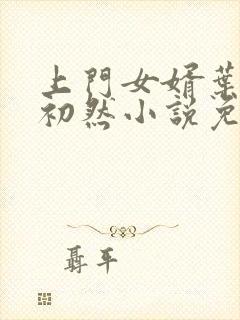 上門女婿葉
初然小説免
聶平